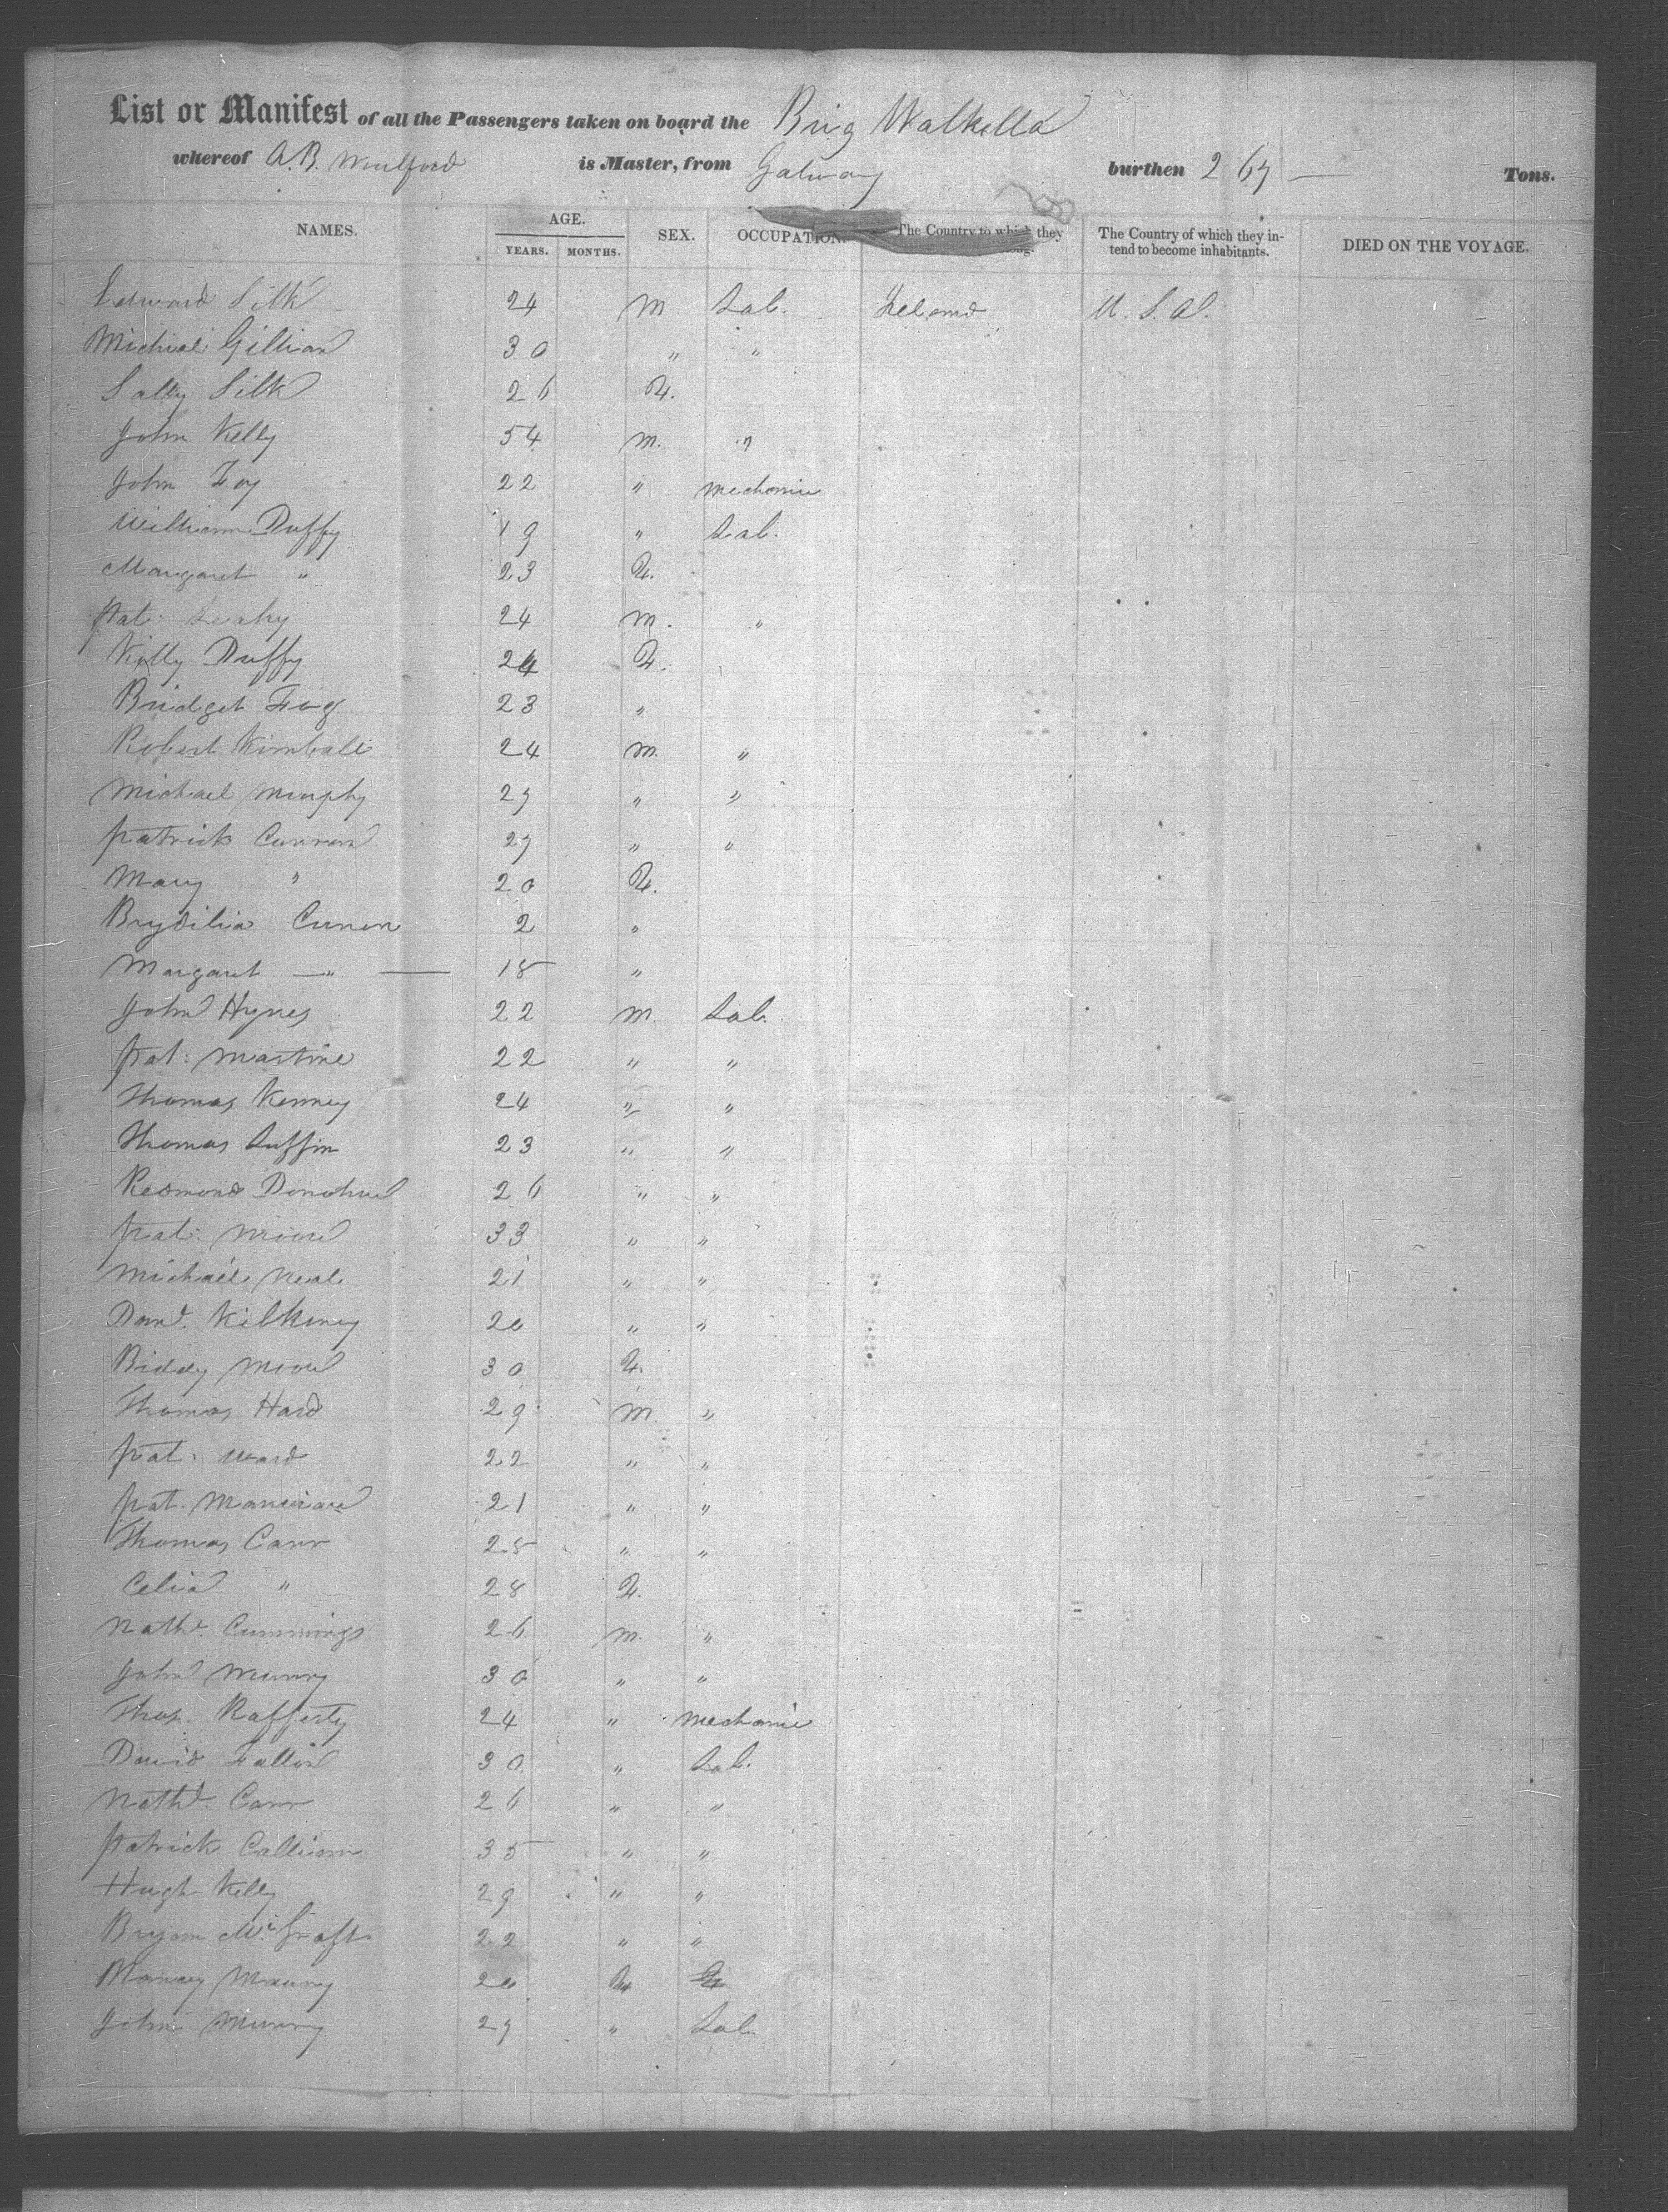 List or Manifest of all the Passengers taken on board the Brig Walhella
whereof A.B. Mulford is Master, from Galway burthen 267 — Tons.
NAMES. AGE. YEARS. MONTHS. SEX. OCCUPATION. The Country to which they The Country of which they intend to become inhabitants. DIED ON THE VOYAGE.
Edward Silk 24 M Lab. Ireland U. S. A.
Michial Gillian 30 " "
Sally Silk 26 F.
John Kelly 54 M. "
John Foy 22 " mechanic
William Duffy 19 " Lab.
Margaret " 23 F.
Pat: Leahy 24 M. "
Kitty Duffy 24 F.
Bridget Foy 23 "
Robert Kimball 24 M. "
Michael Murphy 27 " "
Patrick Curran 27 " "
Mary " 20 F.
Brydilia Curran 2 "
Margaret — " — 18 "
John Hynes 22 M Lab.
Pat: Martine 22 " "
Thomas Kenney 24 " "
Thomas Luffin 23 " "
Redmond Donohue 26 " "
Pat: Moore 33 " "
Michael Neal 21 " "
Danl. Kilkenny 20 " "
Biddy Moore 30 F.
Thomas Hard 29 M. "
Pat: Ward 22 " "
Pat. 21 " "
Thomas Carr 25 " "
Celia " 28 F.
Cummings 26 M. "
John Murry 30 " "
Thos. Rafferty 24 " mechanic
David Fallon 30 " Lab.
Carr 26 " "
Patrick Callinan 35 " "
Hugh Kelly 29 " "
Bryan 22 " "
Nancy Murry 20 F
John Murry 27 " Lab